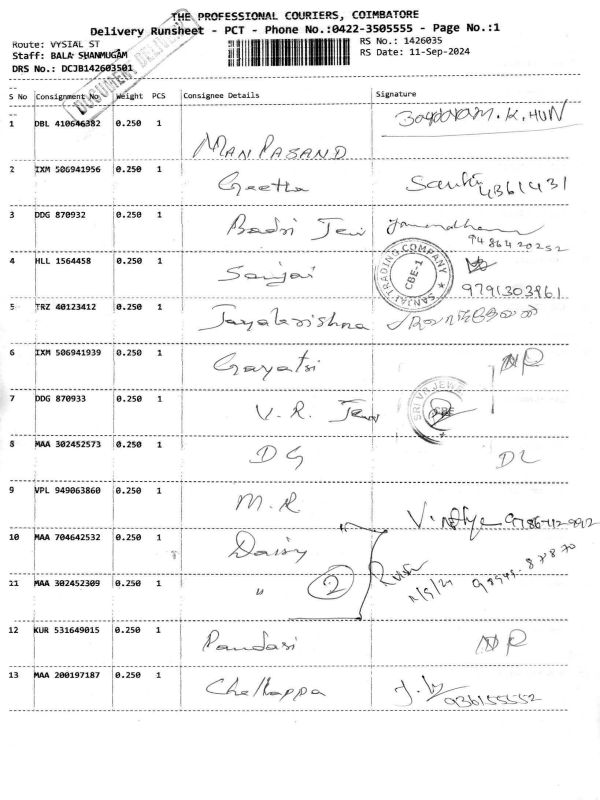 THE PROFESSIONAL COURIERS, COIMBATORE
Delivery Runsheet - PCT - Phone No.:0422-3505555 - Page No.:1
Route: VYSIAL ST
RS No.: 1426035
Staff: BALA SHANMUGAM
RS Date: 11-Sep-2024
DRS No.: DCJB142603501
DOCUMENT DELIVERY
S No Consignment No Weight PCS Consignee Details Signature
1 DBL 410646382 0.250 1 MANPASAND K.
2 IXM 506941956 0.250 1 Geetha 4361431
3 DDG 870932 0.250 1 Badri Jew 9486420252
4 HLL 1564458 0.250 1 Sanjai
SANJAI TRADING COMPANY
CBE-1
9791303961
5 TRZ 40123412 0.250 1 Jayakrishna
6 IXM 506941939 0.250 1 Gayatri NR
7 DDG 870933 0.250 1 V. R. Jew
SRI VR JEWE
CBE
8 MAA 302452573 0.250 1 DG DL
9 VPL 949063860 0.250 1 M.R
10 MAA 704642532 0.250 1 Daisy
11 MAA 302452309 0.250 1 " 2
12 KUR 531649015 0.250 1 Pandasi NR
13 MAA 200197187 0.250 1 Chellappa
936155552